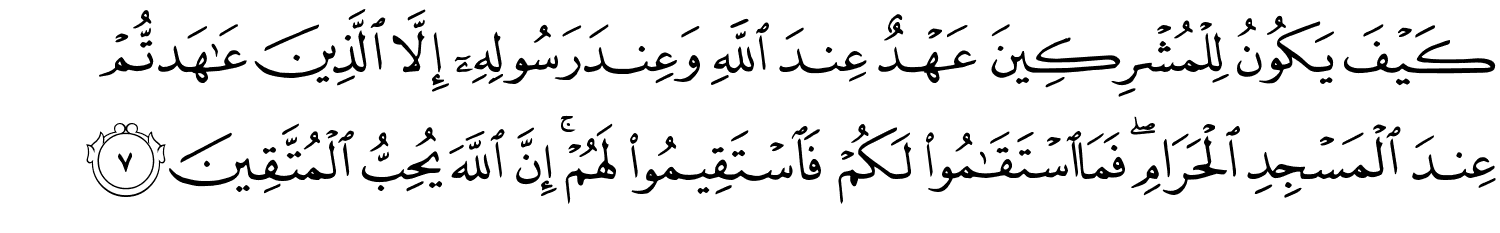 كَيۡفَ يَكُونُ لِلۡمُشۡرِكِينَ عَهۡدٌ عِندَ ٱللَّهِ وَعِندَ رَسُولِهِۦٓ إِلَّا ٱلَّذِينَ عَٰهَدتُّمۡ
عِندَ ٱلۡمَسۡجِدِ ٱلۡحَرَامِۖ فَمَا ٱسۡتَقَٰمُواْ لَكُمۡ فَٱسۡتَقِيمُواْ لَهُمۡۚ إِنَّ ٱللَّهَ يُحِبُّ ٱلۡمُتَّقِينَ ٧